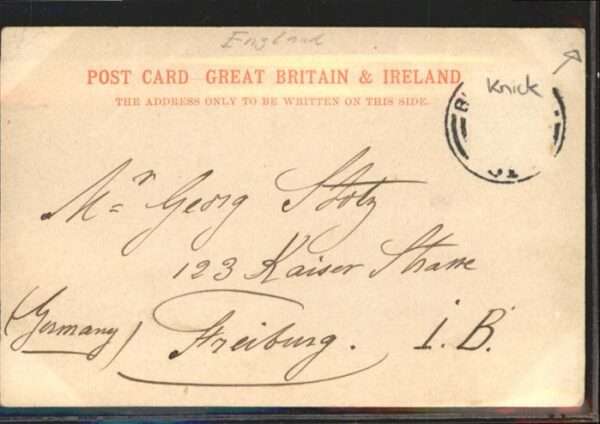 England
POST CARD GREAT BRITAIN & IRELAND
THE ADDRESS ONLY TO BE WRITTEN ON THIS SIDE.
Knick
Mr Georg Stolz
123 Kaiser Strasse
(Germany) Freiburg. i. B.